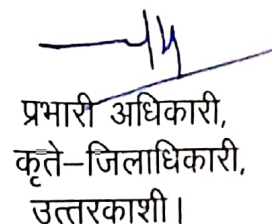 प्रभारी अधिकारी,
कृते–जिलाधिकारी,
उत्तरकाशी।